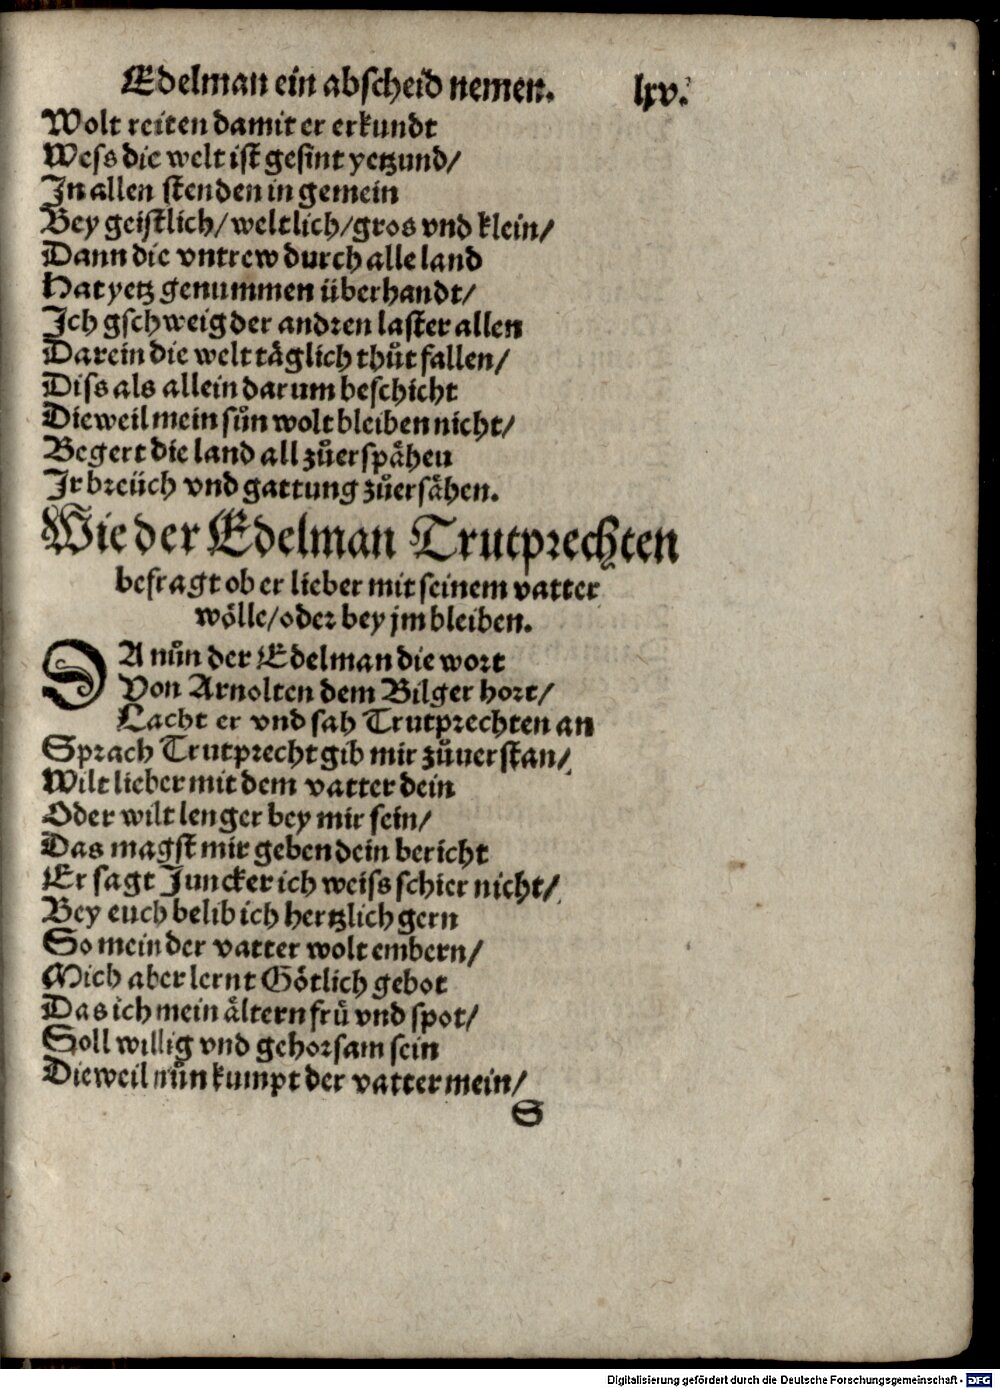 Edelman ein abscheid nemen. lxv.
Wolt reiten damit er erkundt
Wess die welt ist gesint yetzund/
In allen stenden in gemein
Bey geistlich/weltlich/gros vnd klein/
Dann die vntrew durch alle land
Hat yetz genummen überhandt/
Ich gschweig der andren laster allen
Darein die welt täglich thůt fallen/
Diss als allein darum beschicht
Dieweil mein sůn wolt bleiben nicht/
Begert die land all zůerspåhen
Ir breüch vnd gattung zůersåhen.
Wie der Edelman Trutprechten
befragt ob er lieber mit seinem vatter
wölle/oder bey jm bleiben.
DA nůn der Edelman die wort
Von Arnolten dem Bilger hort/
Lacht er vnd sah Trutprechten an
Sprach Trutprecht gib mir zůuerstan/
Wilt lieber mit dem vatter dein
Oder wilt lenger bey mir sein/
Das magst mir geben dein bericht
Er sagt Juncker ich weiss schier nicht/
Bey euch belib ich hertzlich gern
So mein der vatter wolt embern/
Mich aber lernt Götlich gebot
Das ich mein ältern frü vnd spot/
Soll willig vnd gehorsam sein
Dieweil nůn kumpt der vatter mein/
S
Digitalisierung gefördert durch die Deutsche Forschungsgemeinschaft - DFG